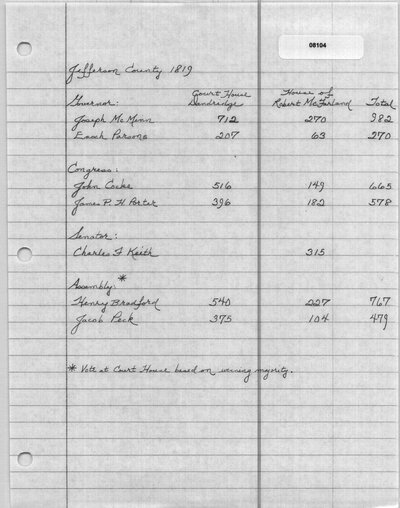 08104
Jefferson County 1819
Court House House of
Governor: Dandridge Robert McFarland Total
Joseph McMinn 712 270 982
Enoch Parsons 207 63 270
Congress:
John Cocke 516 149 665
James P. H. Porter 396 182 578
Senator:
Charles F Keith 315
Assembly:*
Henry Bradford 540 227 767
Jacob Peck 375 104 479
* Vote at Court House based on winning majority.